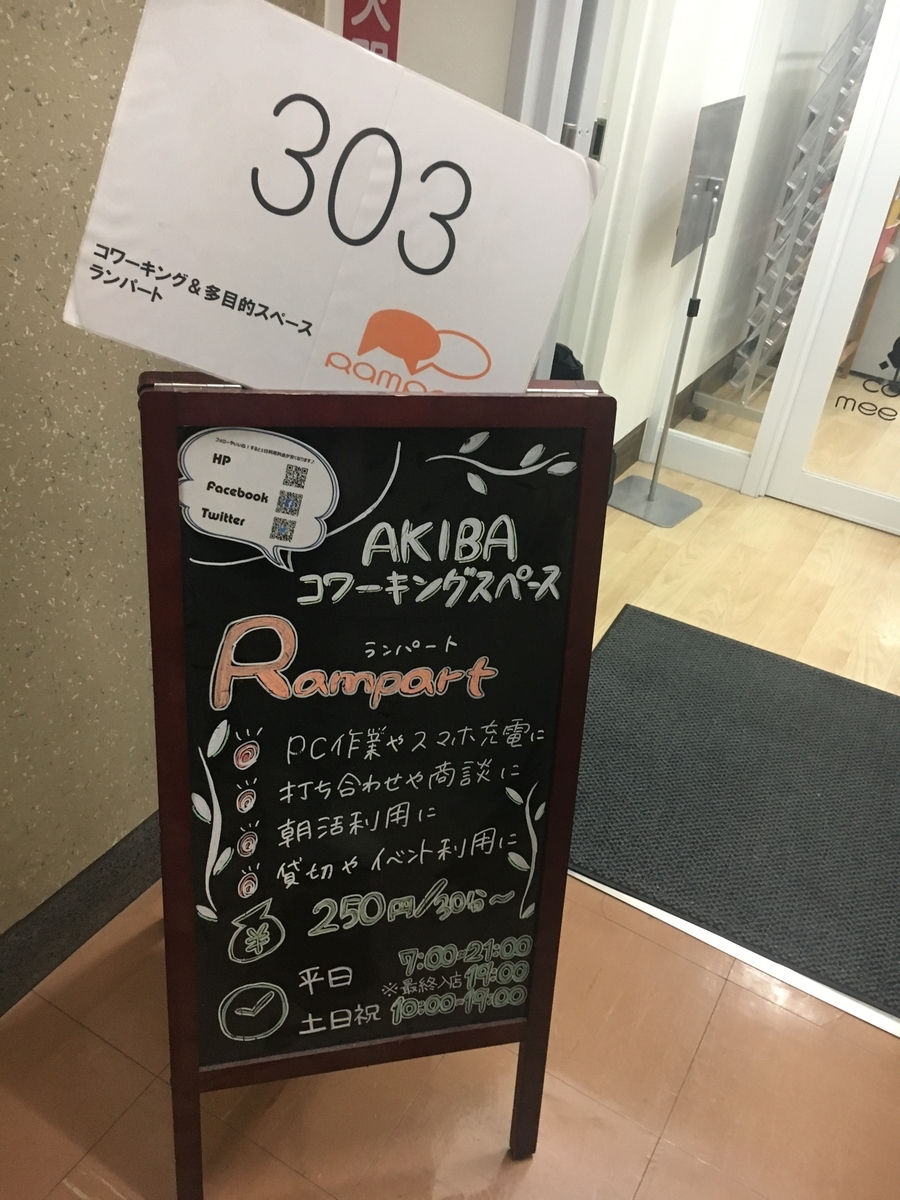 火
303
コワーキング&多目的スペース
ランパート
フォローやいいね!すると1日利用料金が安くなります♪
HP
Facebook
Twitter
AKIBA
コワーキングスペース
ランパート
Rampart
PC作業やスマホ充電に
打ち合わせや商談に
朝活利用に
貸切やイベント利用に
¥
250円/30分~
平日 7:00-21:00
※最終入店19:00
土日祝 10:00-19:00
co
mee